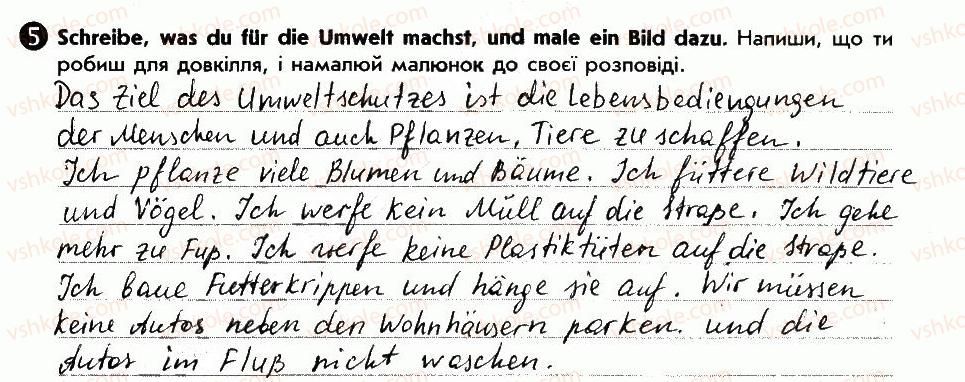 5 Schreibe, was du für die Umwelt machst, und male ein Bild dazu. Напиши, що ти
робиш для довкілля, і намалюй малюнок до своєї розповіді.
Das Ziel des Umweltschutzes ist die Lebensbediengungen
der Menschen und auch Pflanzen, Tiere zu schaffen.
Ich pflanze viele Blumen und Bäume. Ich füttere Wildtiere
und Vögel. Ich werfe kein Müll auf die Straße. Ich gehe
mehr zu Fuß. Ich werfe keine Plastiktüten auf die Straße.
Ich baue Futterkrippen und hänge sie auf. Wir müssen
keine Autos neben den Wohnhäusern parken. und die
Autos im Fluß nicht waschen.